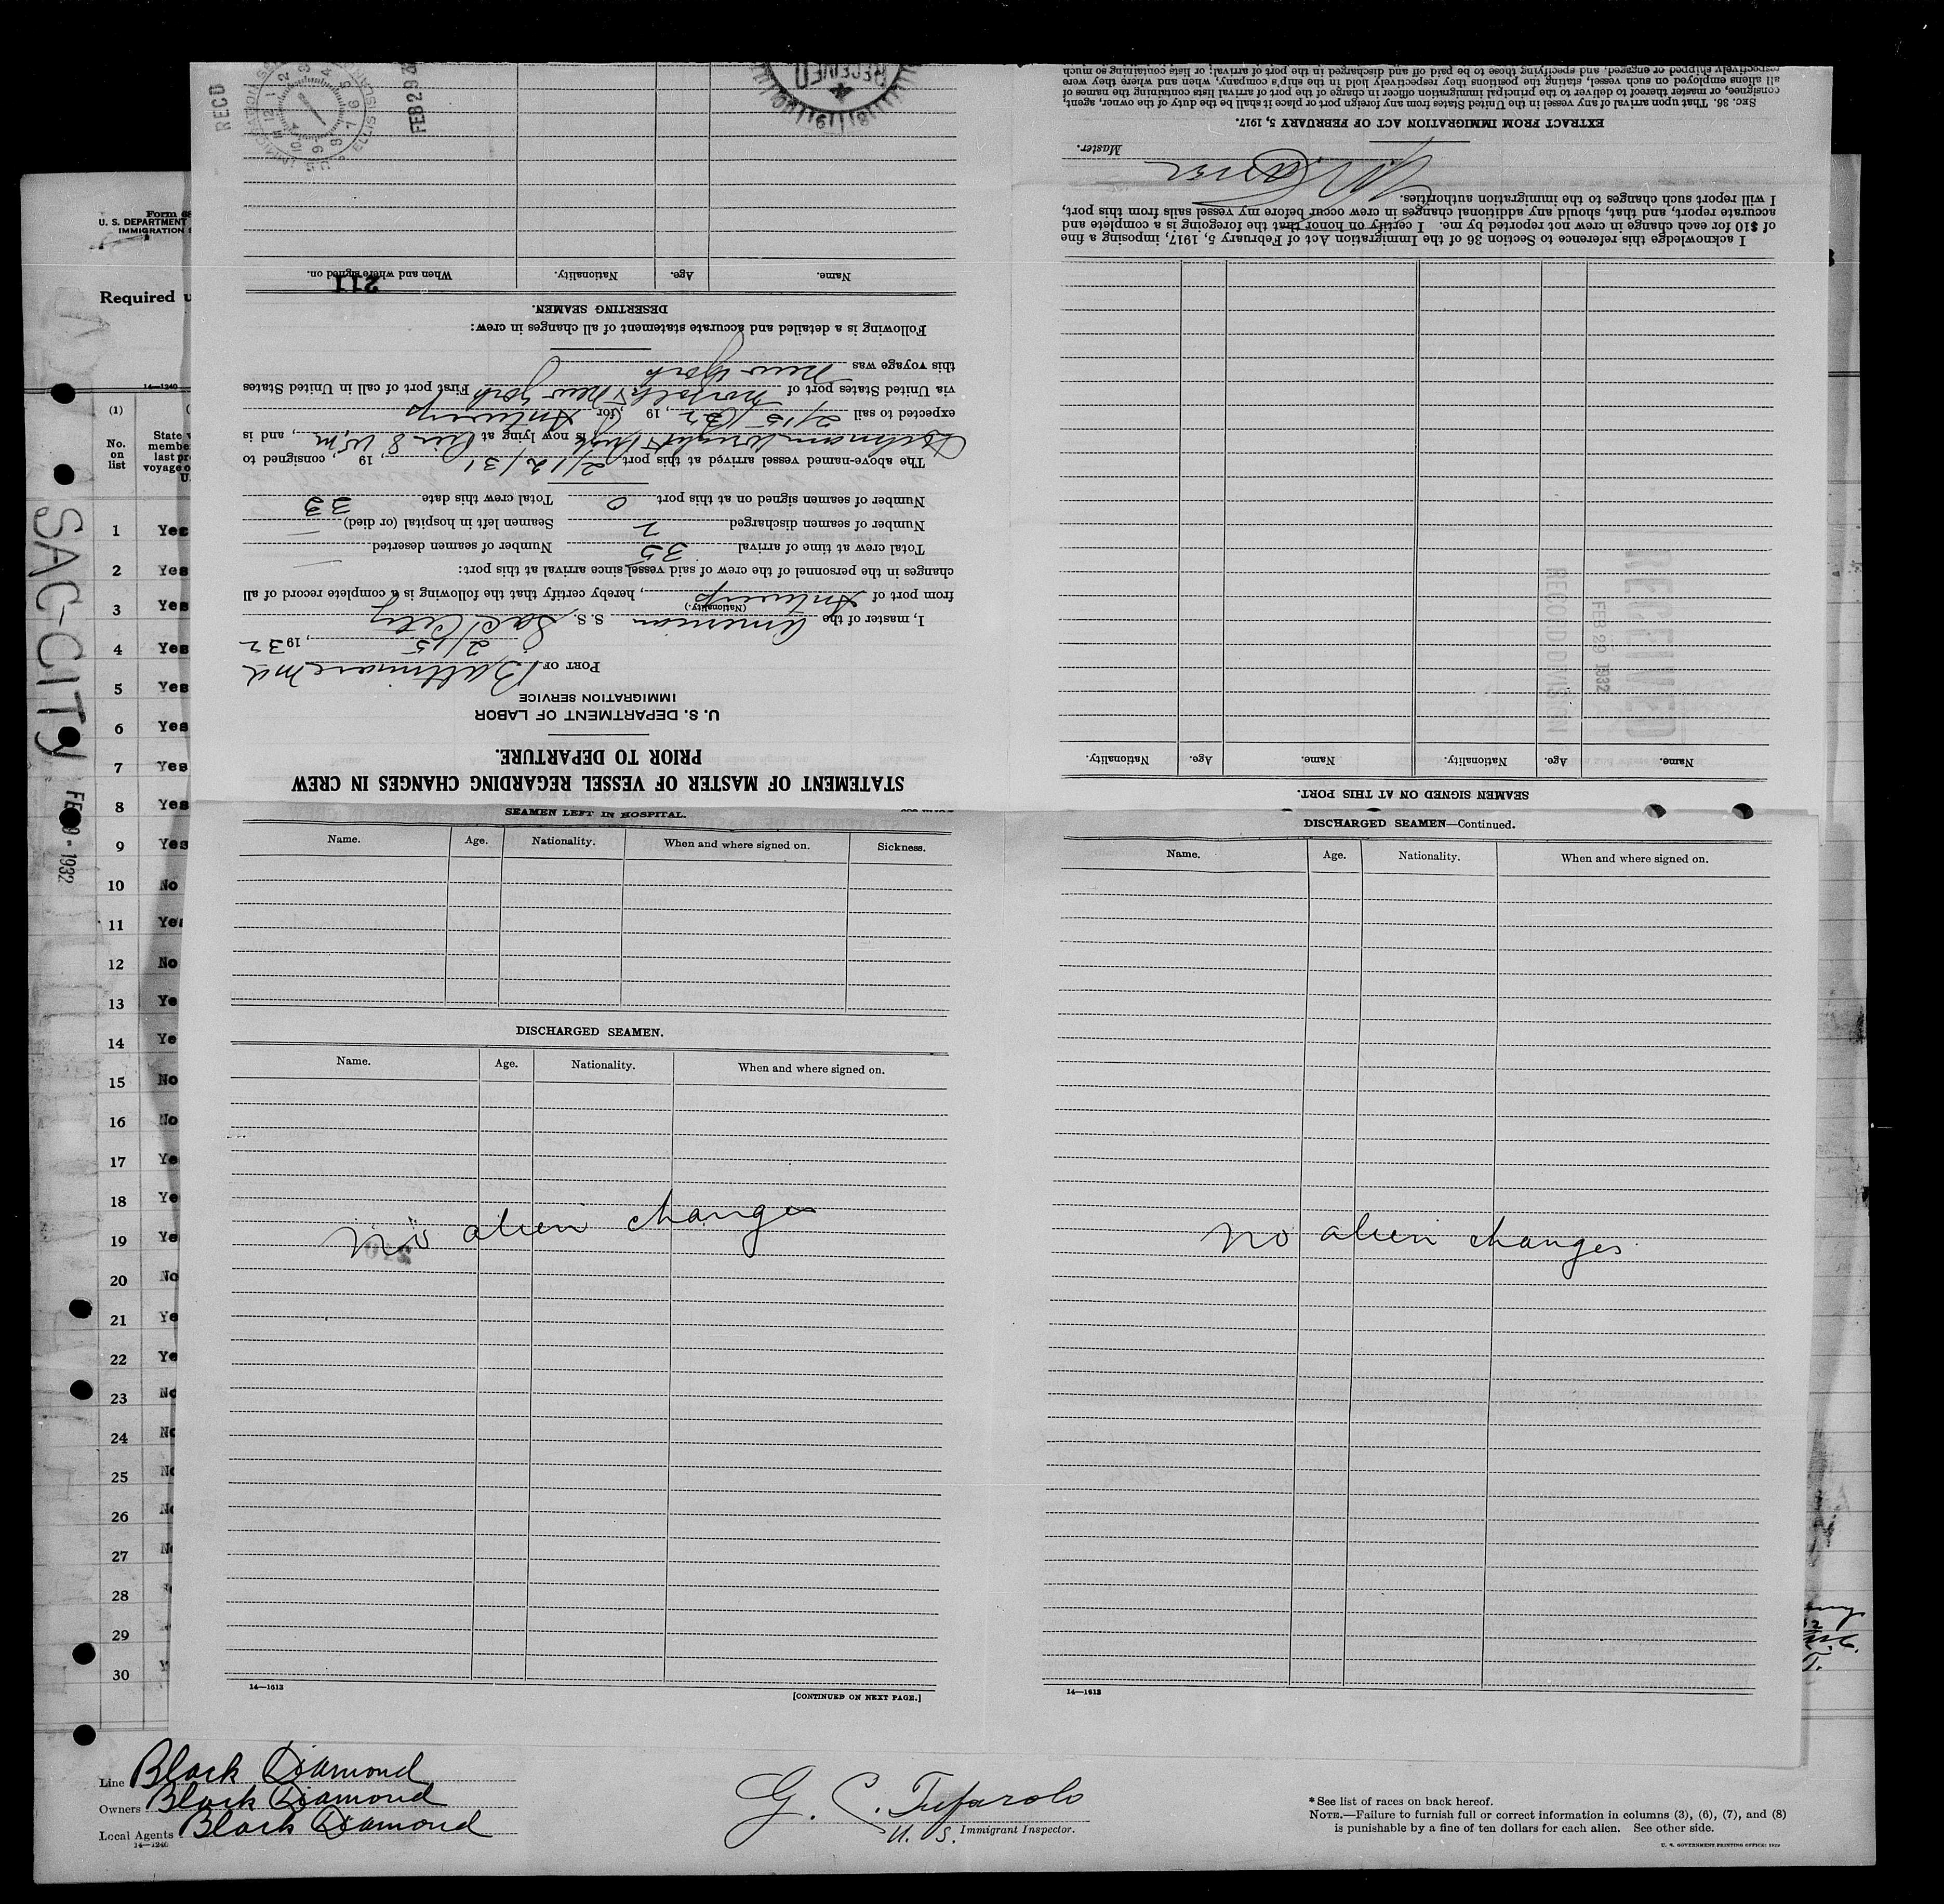 Form 68
U. S. DEPARTMENT
IMMIGRATION S
Required u
14—1240
(1)
No. on list
State w
membe
last pr
voyage o
U.
SAC-CITY
FEB - 1932
1 Yes
2 Yes
3 Yes
4 Yes
5 Yes
6 Yes
7 Yes
8 Yes
9 Yes
10 No
11 Yes
12 No
13 Ye
14 Ye
15 No
16 No
17 Ye
18 Ye
19 Ye
20 No
21 Ye
22 Ye
23 No
24 No
25 No
26 No
27 N
28
29
30 Y
STATEMENT OF MASTER OF VESSEL REGARDING CHANGES IN CREW
PRIOR TO DEPARTURE.
U. S. DEPARTMENT OF LABOR
IMMIGRATION SERVICE
PORT OF Baltimore Md
2/15, 1932
I, master of the American S. S. Sac City
(Nationality.)
from port of Antwerp, hereby certify that the following is a complete record of all
changes in the personnel of the crew of said vessel since arrival at this port:
Total crew at time of arrival 35 Number of seamen deserted —
Number of seamen discharged 2 Seamen left in hospital (or died) —
Number of seamen signed on at this port 0 Total crew this date 33
The above-named vessel arrived at this port 2/12/31, 19 , consigned to
is now lying at Pier 8 W.M, and is
expected to sail 2/15/32, 19 , for Antwerp
via United States port of Norfolk & New York First port of call in United States
this voyage was New York
Following is a detailed and accurate statement of all changes in crew:
DESERTING SEAMEN.
Name. Age. Nationality. When and where signed on.
211
RECD
FEB 29 32
RECEIVED
SEAMEN SIGNED ON AT THIS PORT.
Name. Age. Nationality. Name. Age. Nationality.
RECEIVED
FEB 29 1932
RECORD DIVISION
I acknowledge this reference to Section 36 of the Immigration Act of February 5, 1917, imposing a fine
of $10 for each change in crew not reported by me. I certify on honor that the foregoing is a complete and
accurate report, and that, should any additional changes in crew occur before my vessel sails from this port,
I will report such changes to the immigration authorities.
Master.
EXTRACT FROM IMMIGRATION ACT OF FEBRUARY 5, 1917.
SEC. 36. That upon arrival of any vessel in the United States from any foreign port or place it shall be the duty of the owner, agent,
consignee, or master thereof to deliver to the principal immigration officer in charge of the port of arrival lists containing the names of
all aliens employed on such vessel, stating the positions they respectively hold in the ship's company, when and where they were
respectively shipped or engaged, and specifying those to be paid off and discharged in the port of arrival; or lists containing so much
SEAMEN LEFT IN HOSPITAL.
Name. Age. Nationality. When and where signed on. Sickness.
DISCHARGED SEAMEN.
Name. Age. Nationality. When and where signed on.
no alien changes
210
14—1613
[CONTINUED ON NEXT PAGE.]
DISCHARGED SEAMEN—Continued.
Name. Age. Nationality. When and where signed on.
no alien changes
14—1613
Line Black Diamond
Owners Black Diamond
Local Agents Black Diamond
14—1240
G. C. Tufarolo
U. S. Immigrant Inspector.
*See list of races on back hereof.
NOTE.—Failure to furnish full or correct information in columns (3), (6), (7), and (8)
is punishable by a fine of ten dollars for each alien. See other side.
U. S. GOVERNMENT PRINTING OFFICE: 1929